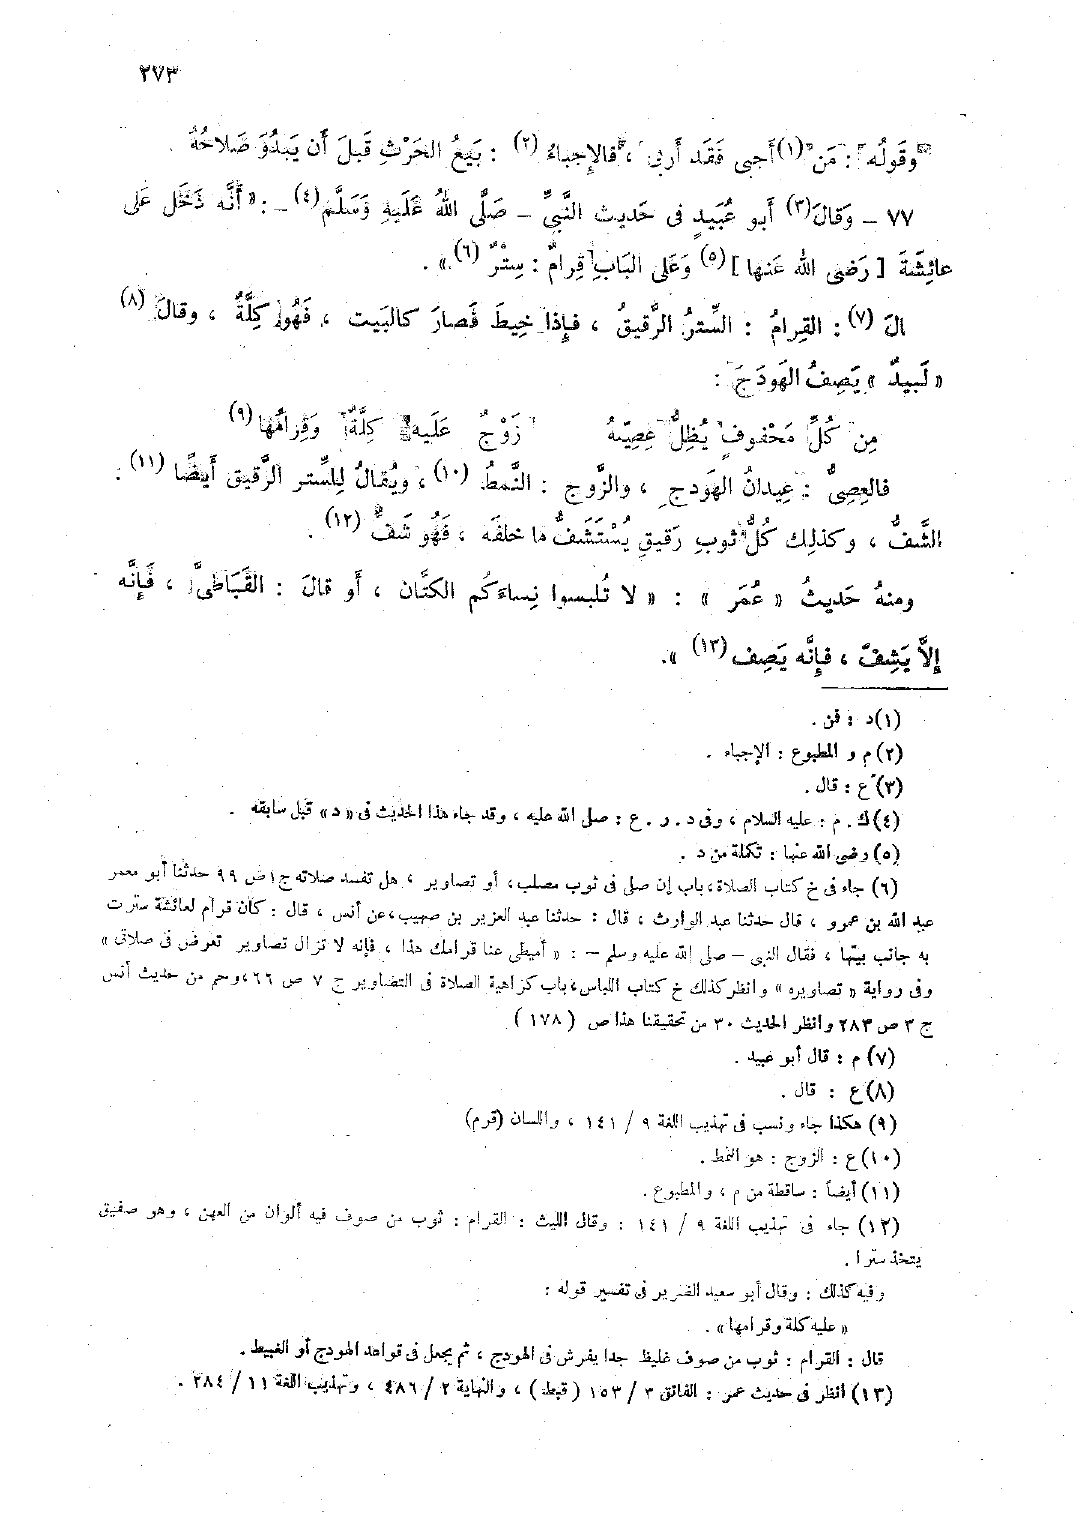 ٢٧٣
«وقَولُه» : مَن (١) أَجبى فَقَد أَربى ، فالإِجباءُ (٢) : بَيعُ الحَرْثِ قَبلَ أَن يَبدُوَ صَلاحُهُ .
٧٧ – وَقالَ (٣) أَبو عُبَيدٍ فى حَديث النَّبىِّ – صَلَّى اللهُ عَلَيهِ وَسَلَّم (٤) – : « أَنَّه دَخَل عَلى
عائِشَةَ [ رَضى الله عَنها ] (٥) وَعَلى البَابِ قِرامٌ : سِتْرٌ (٦) » .
الَ (٧) : القِرامُ : السِّترُ الرَّقيقُ ، فإِذا خيطَ فَصارَ كالبَيت ، فَهُو كِلَّةٌ ، وقالَ (٨)
« لَبيدٌ » يَصِفُ الهَودَجَ :
مِن كُلِّ مَحْفوفٍ يُظِلُّ عِصِيّهُ زَوْجٌ عَلَيه كِلَّةٌ وَقِرامُها (٩)
فالعِصِىُّ : عيدانُ الهَودجِ ، والزَّوج : النَّمطُ (١٠) ، ويُقالُ لِلسِّتر الرَّقيق أَيضًا (١١) :
الشَّفُّ ، وكذلِك كُلُّ ثوبٍ رَقيقٍ يُسْتَشَفُّ ما خلفَه ، فَهُو شَفٌّ (١٢) .
ومنهُ حَديثُ « عُمَر » : « لا تُلبسوا نِساءَكم الكتَّان ، أَو قالَ : القَبَاطىَّ ، فَإِنَّه
إِلاَّ يَشِفّ ، فإِنَّه يَصِف (١٣) ».
(١) د : فن .
(٢) م و المطبوع : الإجباء .
(٣) ع : قال .
(٤) ك . م : عليه السلام ، وفى د . ر . ع : صل الله عليه ، وقد جاء هذا الحديث فى « د » قبل سابقه .
(٥) رضى الله عنها : تكملة من د .
(٦) جاء فى خ كتاب الصلاة ، باب إن صلى فى ثوب مصلب ، أو تصاوير ، هل تفسد صلاته ج ١ ص ٩٩ حدثنا أبو معمر
عبد الله بن عمرو ، قال حدثنا عبد الوارث ، قال : حدثنا عبد العزيز بن صهيب ، عن أنس ، قال : كان قرام لعائشة سترت
به جانب بيتها ، فقال النبى – صلى الله عليه وسلم – : « أميطى عنا قرامك هذا ، فإنه لا تزال تصاوير تعرض فى صلاتى »
وفى رواية « تصاويره » وانظر كذلك خ كتاب اللباس ، باب كراهية الصلاة فى التصاوير ج ٧ ص ٦٦ ، وحم من حديث أنس
ج ٣ ص ٢٨٣ وانظر الحديث ٣٠ من تحقيقنا هذا ص ( ١٧٨ )
(٧) م : قال أبو عبيد .
(٨) ع : قال .
(٩) هكذا جاء ونسب فى تهذيب اللغة ٩ / ١٤١ ، واللسان (قرم)
(١٠) ع : الزوج : هو النمط .
(١١) أيضاً : ساقطة من م ، والمطبوع .
(١٢) جاء فى تهذيب اللغة ٩ / ١٤١ : وقال الليث : القرام : ثوب من صوف فيه ألوان من العهن ، وهو صفيق
يتخذ سترا .
وفيه كذلك : وقال أبو سعيد الضرير فى تفسير قوله :
« عليه كلة وقرامها » .
قال : القرام : ثوب من صوف غليظ جدا يفرش فى الهودج ، ثم يجعل فى قواعد الهودج أو الغبيط .
(١٣) انظر فى حديث عمر : الفائق ٣ / ١٥٣ ( قبط ) ، والنهاية ٢ / ٤٨٦ ، وتهذيب اللغة ١١ / ٢٨٤ .